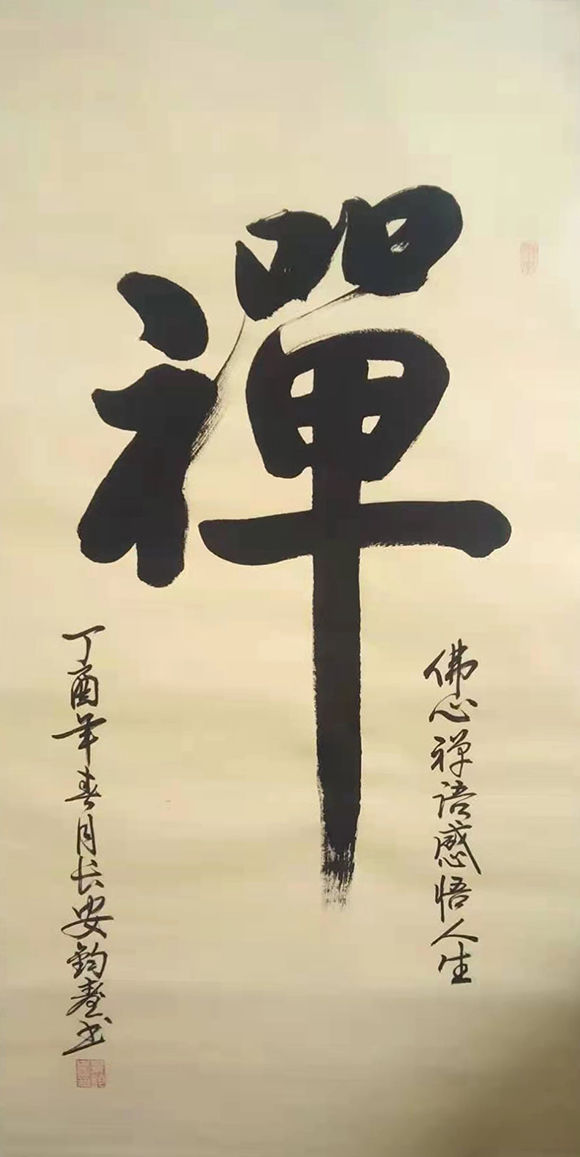 禪
佛心禅语感悟人生
丁酉年春月长安钧臺书